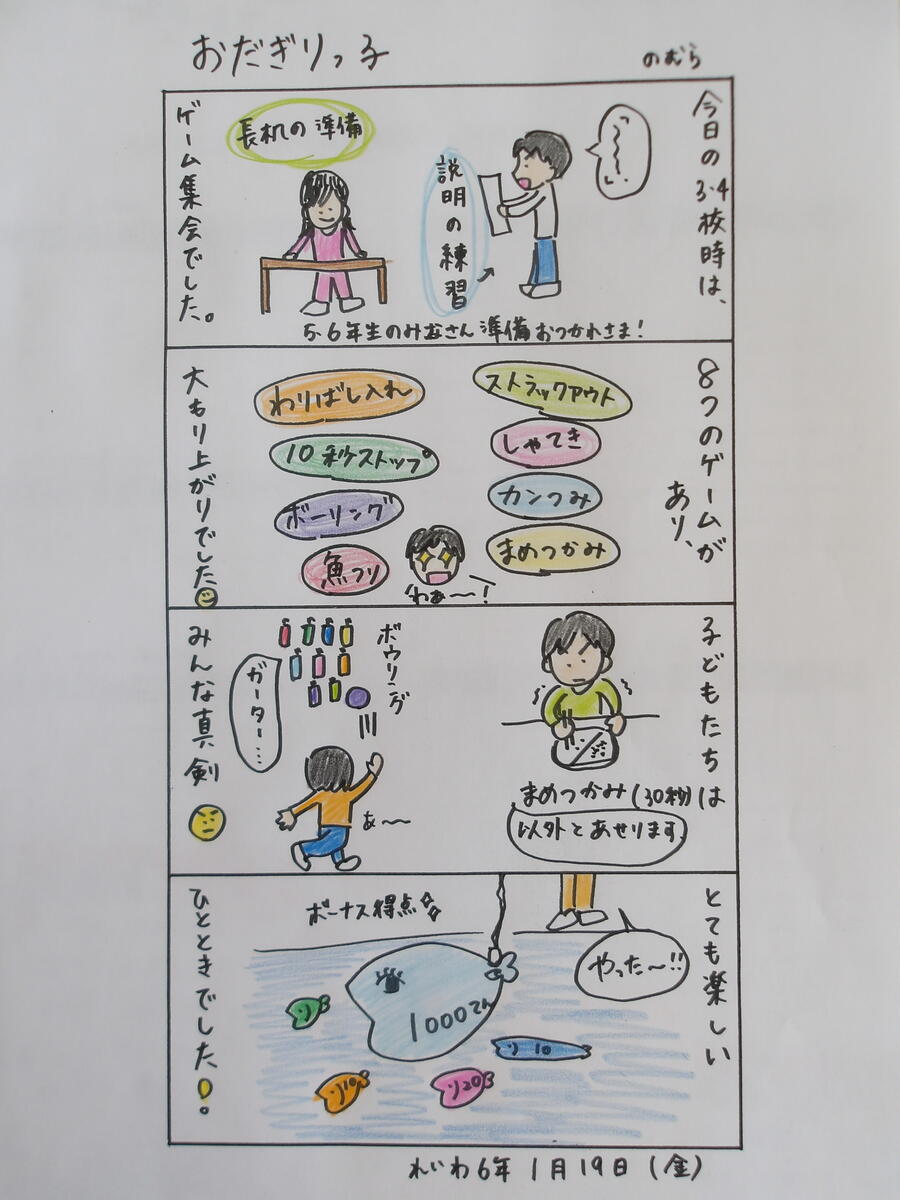 おだぎりっ子
のむら
今日の3.4校時は、
「~~~」
説明の練習
長机の準備
5.6年生のみなさん準備おつかれさま!
ゲーム集会でした。
8つのゲームが
あり、
ストラックアウト
しゃてき
カンつみ
まめつかみ
わりばし入れ
10秒ストップ
ボーリング
魚つり
わぁ~!
大もり上がりでした
子どもたち
まめつかみ(30秒)は
以外とあせります
ボウリング
ガーター…
あ~
みんな真剣
とても楽しい
やった~!!
ボーナス得点
1000てん
10
10
20
ひとときでした!。
れいわ6年 1月19日(金)